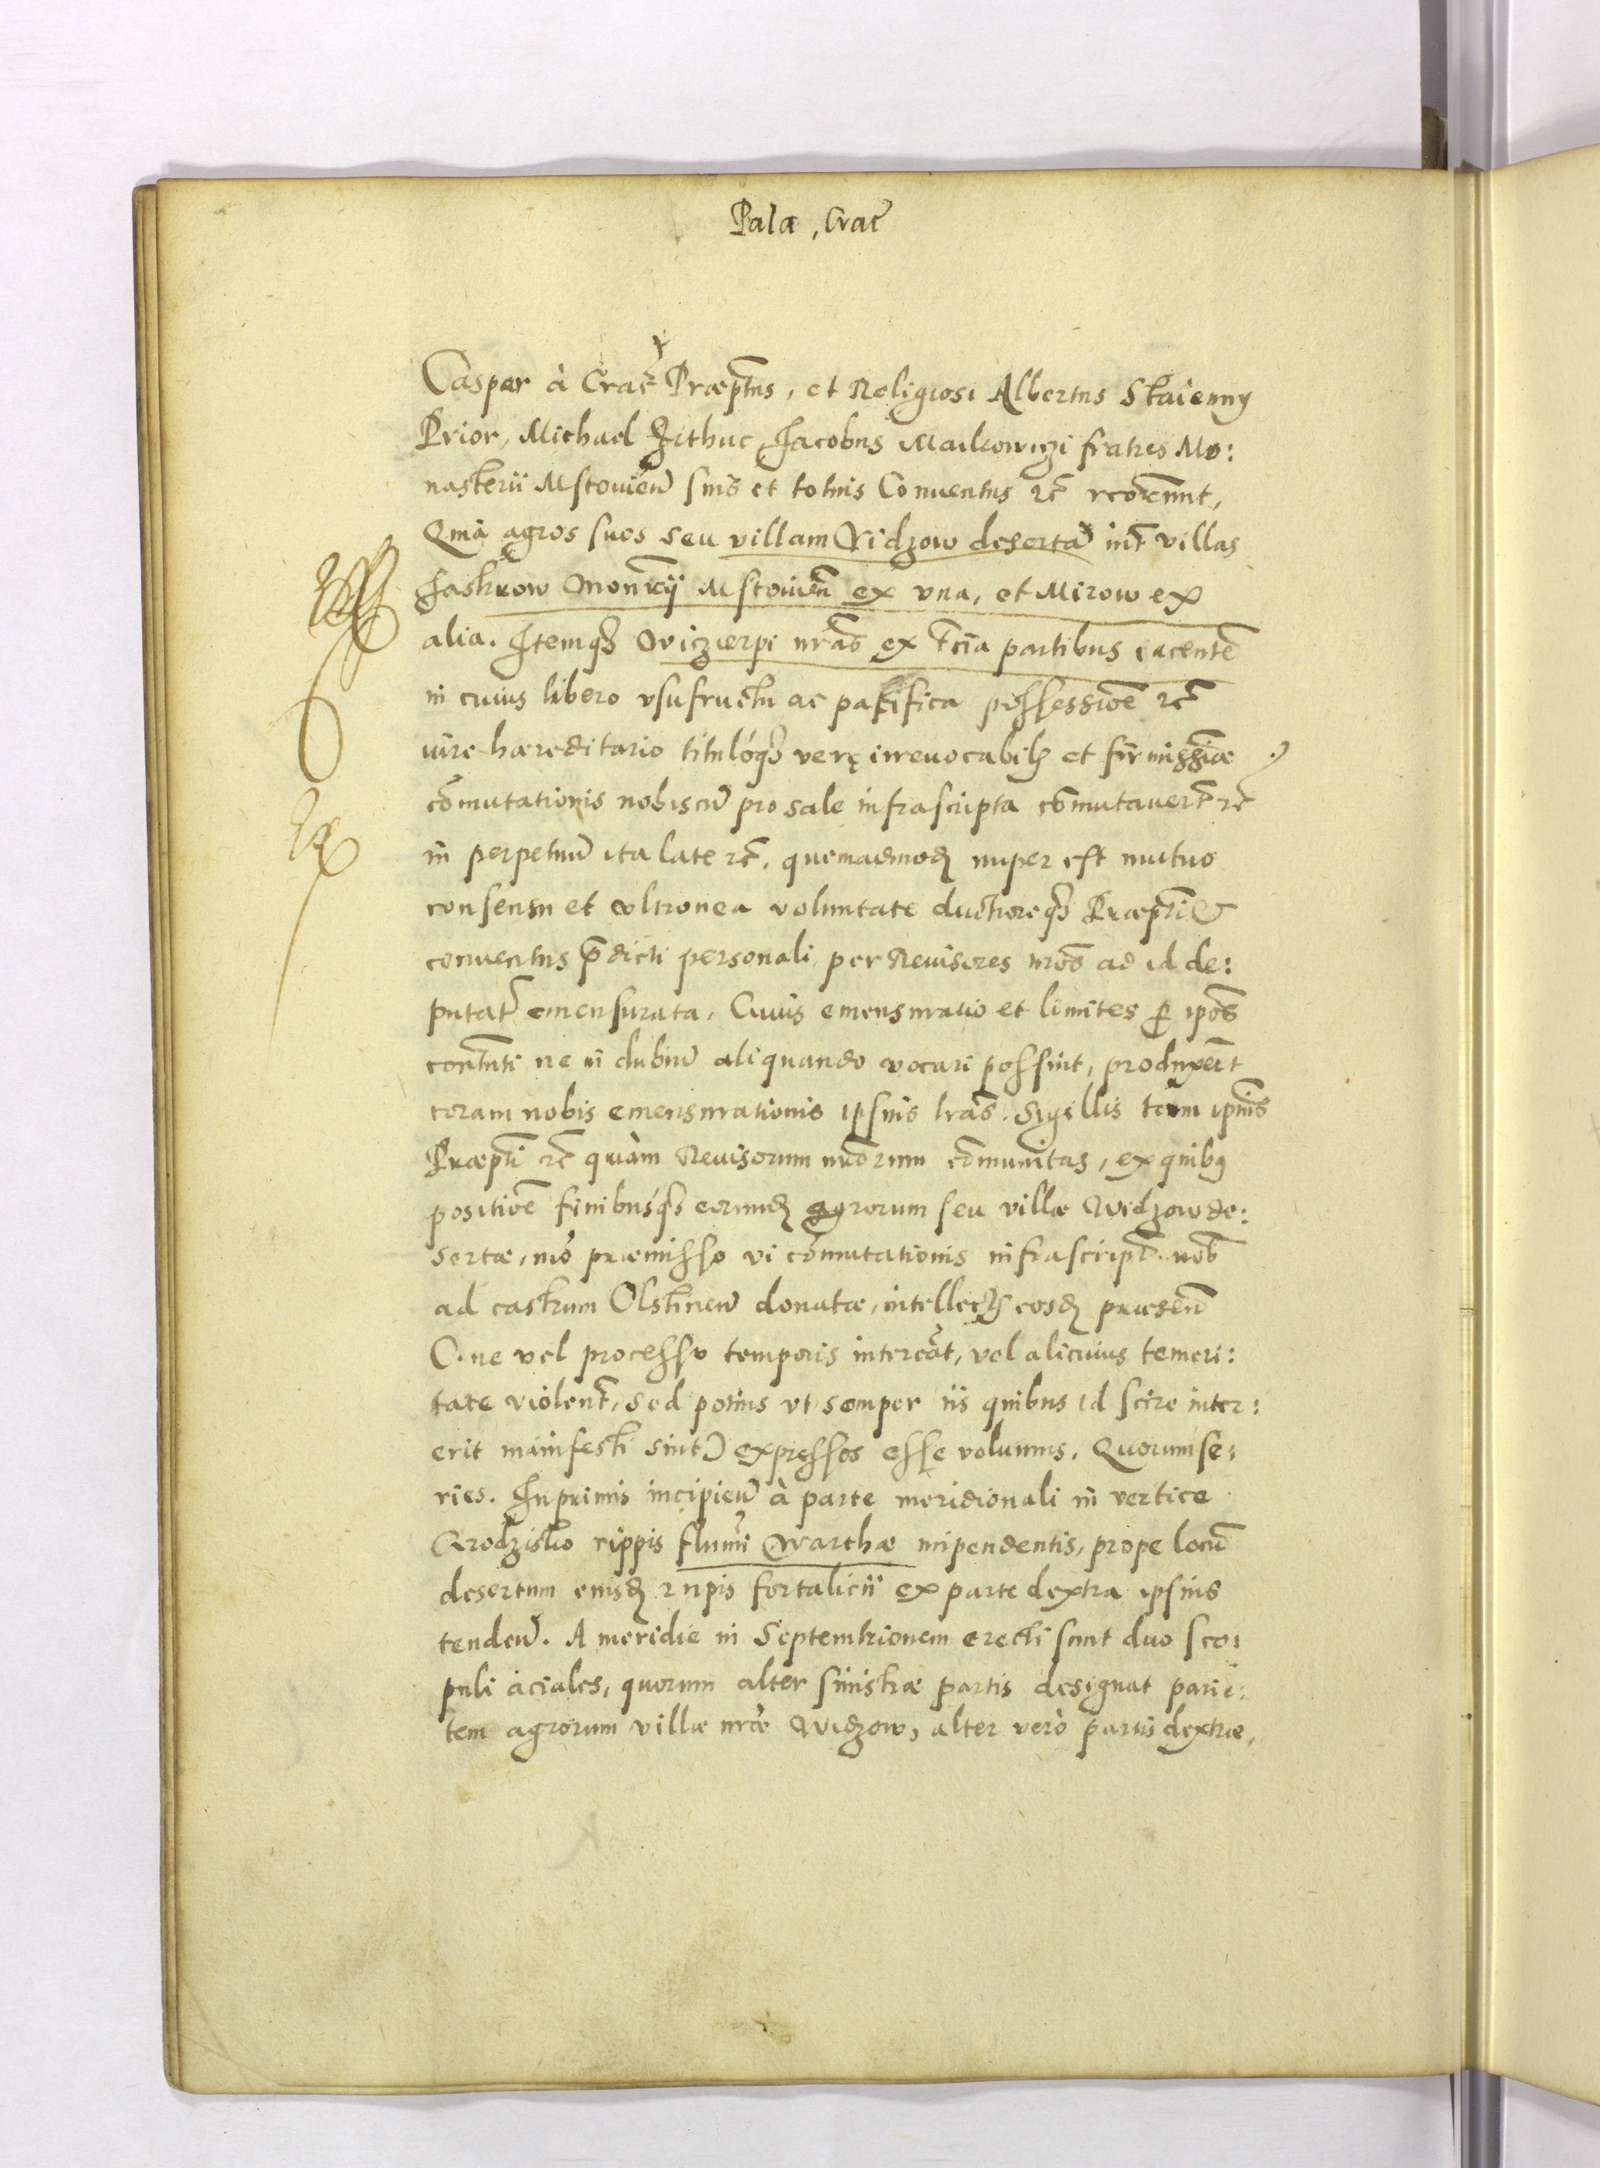 Pala, Crac̃
Caspar à Crac̃ Præptũs, et Religiosi Albertus Skaienny
Prior, Michael Zithuc Jacobus Maikowizi fratres Mo:
nasterii Mstouieñ suis et totius Conuentus rc̃
Quia agros suos seu villam Widzow desertã int̃ villas
Jaskrow Monrij Mstouieñ ex vna, et Mirow ex
alia. Itemqз Wiczierpi nrãs ex tc̃ia partibus iacentẽ
in cuius libero vsufructu ac pakifica possessioẽ rc̃
iure hæreditario titulóqз verę irreuocabilз et firmissimæ
cõmutationis nobiscũ pro sale infrascripta cõmutauerũt rc̃
in perpetuũ ita late rc̃, quemadmodз nuper est mutuo
consensu et vltronea voluntate ductioneqз Præpti &
conuentus p̃dicti personali per Reuisores nrõs ad id de:
putat̃ emensurata, Cuius emensuratio et limites ꝑ ipõs
contenti ne in dubiũ aliquando vocari possint, produxerũt
coram nobis emensurationis ipsius lrãs. Sigillis tam ipsius
Præpti rc̃ quàm Reuisorum nrõrum cõmunitas, ex quibꝰ
positioẽ finibusqз eorundз agrorum seu villæ Widzow de:
sertæ, mõ præmisso vi cõmutationis infrascript̃ nob̃
ad castrum Olstineñ donatæ, intellectз eosdз præseñ
(ne vel processu temporis intereãt, vel alicuius temeri:
tate violent̃, sed potius vt semper iis quibus id scire inter:
erit manifesti sint) expressos esse volumus. Quorum se:
ries. Inprimis incipieñ à parte meridionali in vertice
Grodzisko rippis flumi Warthæ inpendentis, prope locũ
desertum eiusdз rupis fortalicii ex parte dextra ipsius
tendeñ. A meridie in Septemtrionem erecti sunt duo sco:
puli aciales, quorum alter sinistræ partis designat parie:
tem agrorum villæ nrẽ Widzow, alter verò partis dextræ,